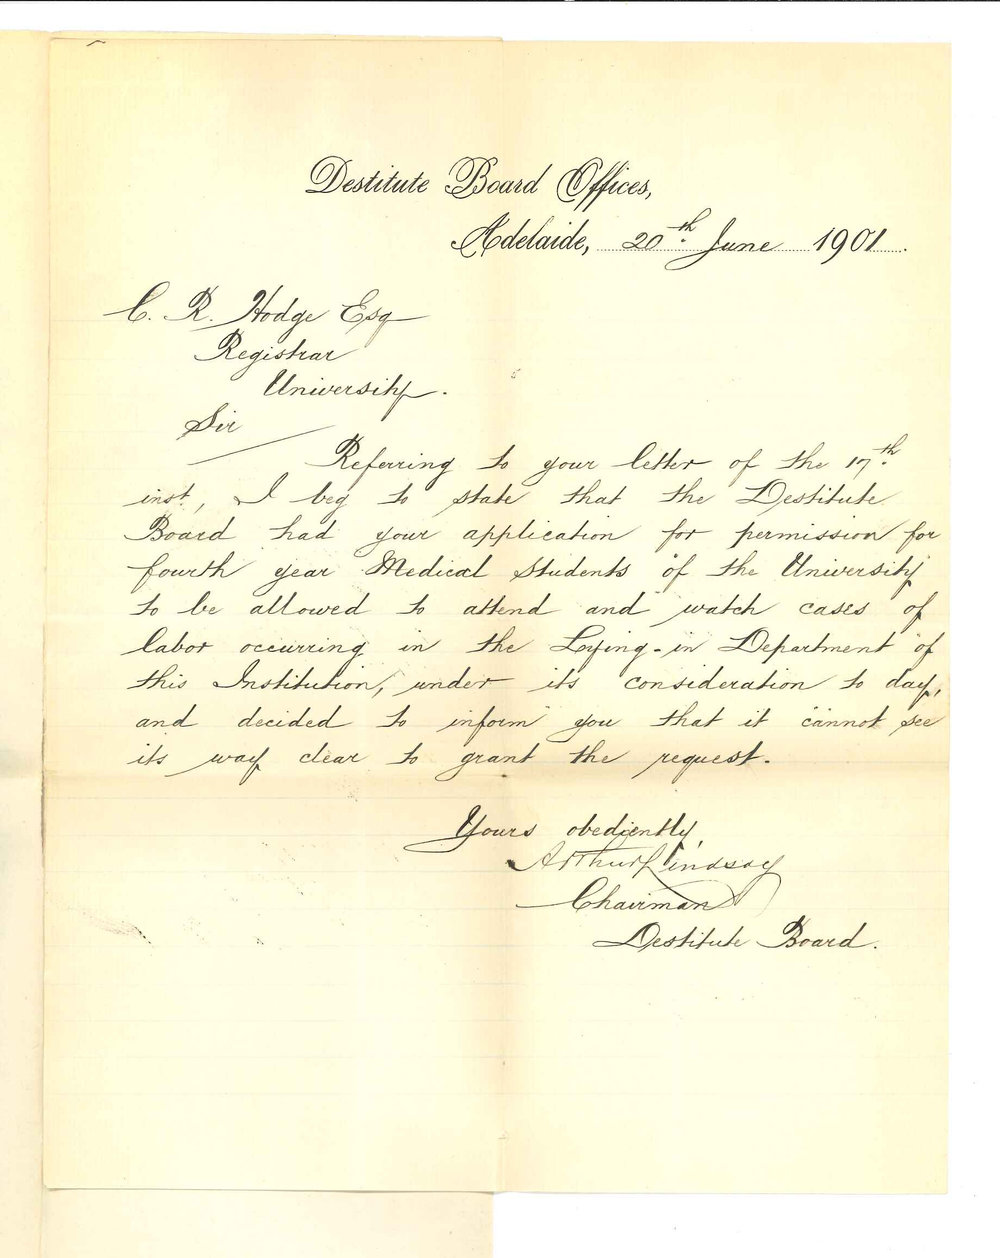 Destitute Board Offices,
Adelaide, 20th June 1901.
C. R. Hodge Esq
Registrar
University.
Sir
Referring to your letter of the 17th
inst, I beg to state that the Destitute
Board had your application for permission for
fourth year Medical Students of the University
to be allowed to attend and watch cases of
labor occurring in the Lying-in Department of
this Institution, under its consideration to day,
and decided to inform you that it cannot see
its way clear to grant the request.
Yours obediently,
Arthur Lindsay
Chairman
Destitute Board.